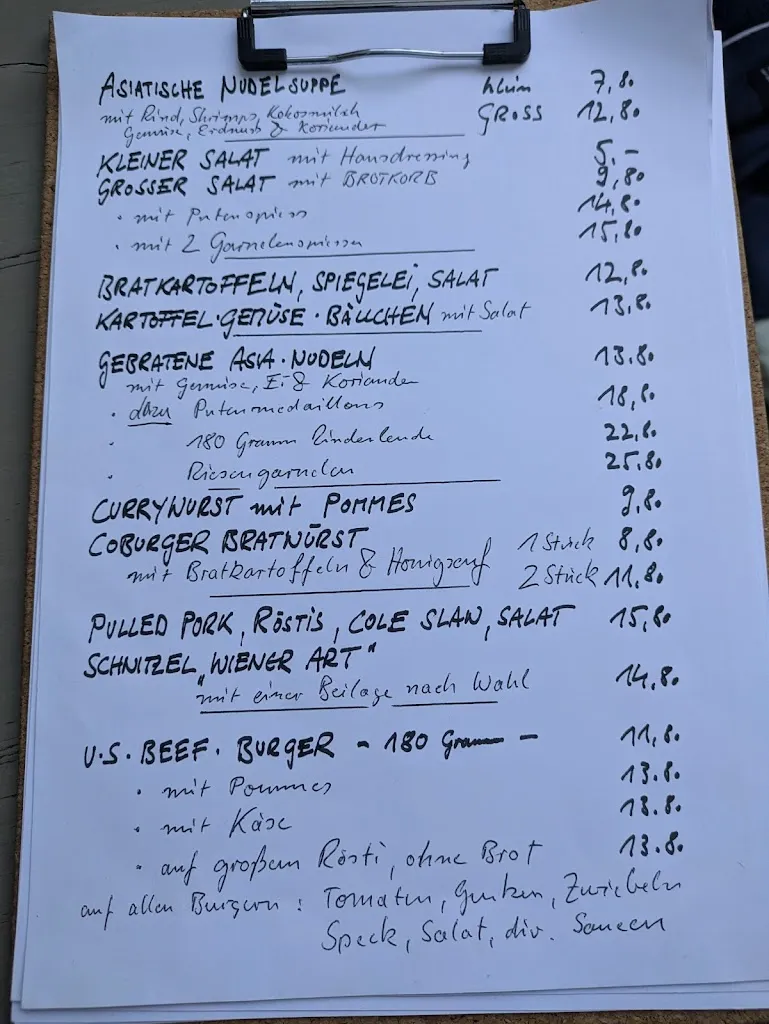 ASIATISCHE NUDELSUPPE klein 7,80
mit Rind, Shrimps, Kokosmilch GROSS 12,80
Gemüse, Erdnuss & Koriander
KLEINER SALAT mit Hausdressing 5,-
GROSSER SALAT mit BROTKORB 9,80
• mit Putenspiess 14,80
• mit 2 Garnelenspiessen 15,80
BRATKARTOFFELN, SPIEGELEI, SALAT 12,80
KARTOFFEL·GEMÜSE·BÄLLCHEN mit Salat 13,80
GEBRATENE ASIA·NUDELN 13.80
mit Gemüse, Ei & Koriander
• dazu Putenmedaillons 18,80
• 180 Gramm Rinderlende 22,80
• Riesengarnelen 25,80
CURRYWURST mit POMMES 9,80
COBURGER BRATWÜRST 1 Stück 8,80
mit Bratkartoffeln & Honigsenf 2 Stück 11,80
PULLED PORK, RÖSTIS, COLE SLAW, SALAT 15,80
SCHNITZEL „WIENER ART"
mit einer Beilage nach Wahl 14,80
U.S. BEEF·BURGER - 180 Gramm - 11,80
• mit Pommes 13.80
• mit Käse 13.80
• auf großem Rösti, ohne Brot 13.80
auf allen Burgern: Tomaten, Gurken, Zwiebeln
Speck, Salat, div. Saucen